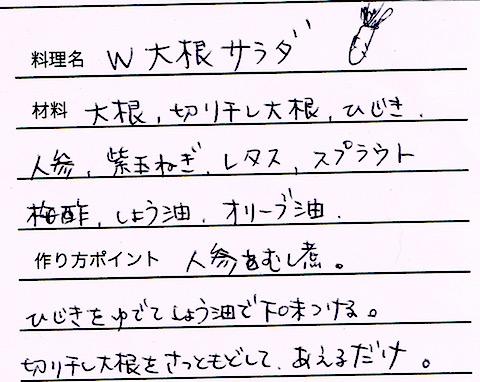 料理名 W大根サラダ
材料 大根,切り干し大根,ひじき.
人参,紫玉ねぎ,レタス,スプラウト
梅酢,しょう油,オリーブ油.
作り方ポイント 人参をむし煮。
ひじきをゆでてしょう油で下味つける。
切り干し大根をさっともどして、あえるだけ。